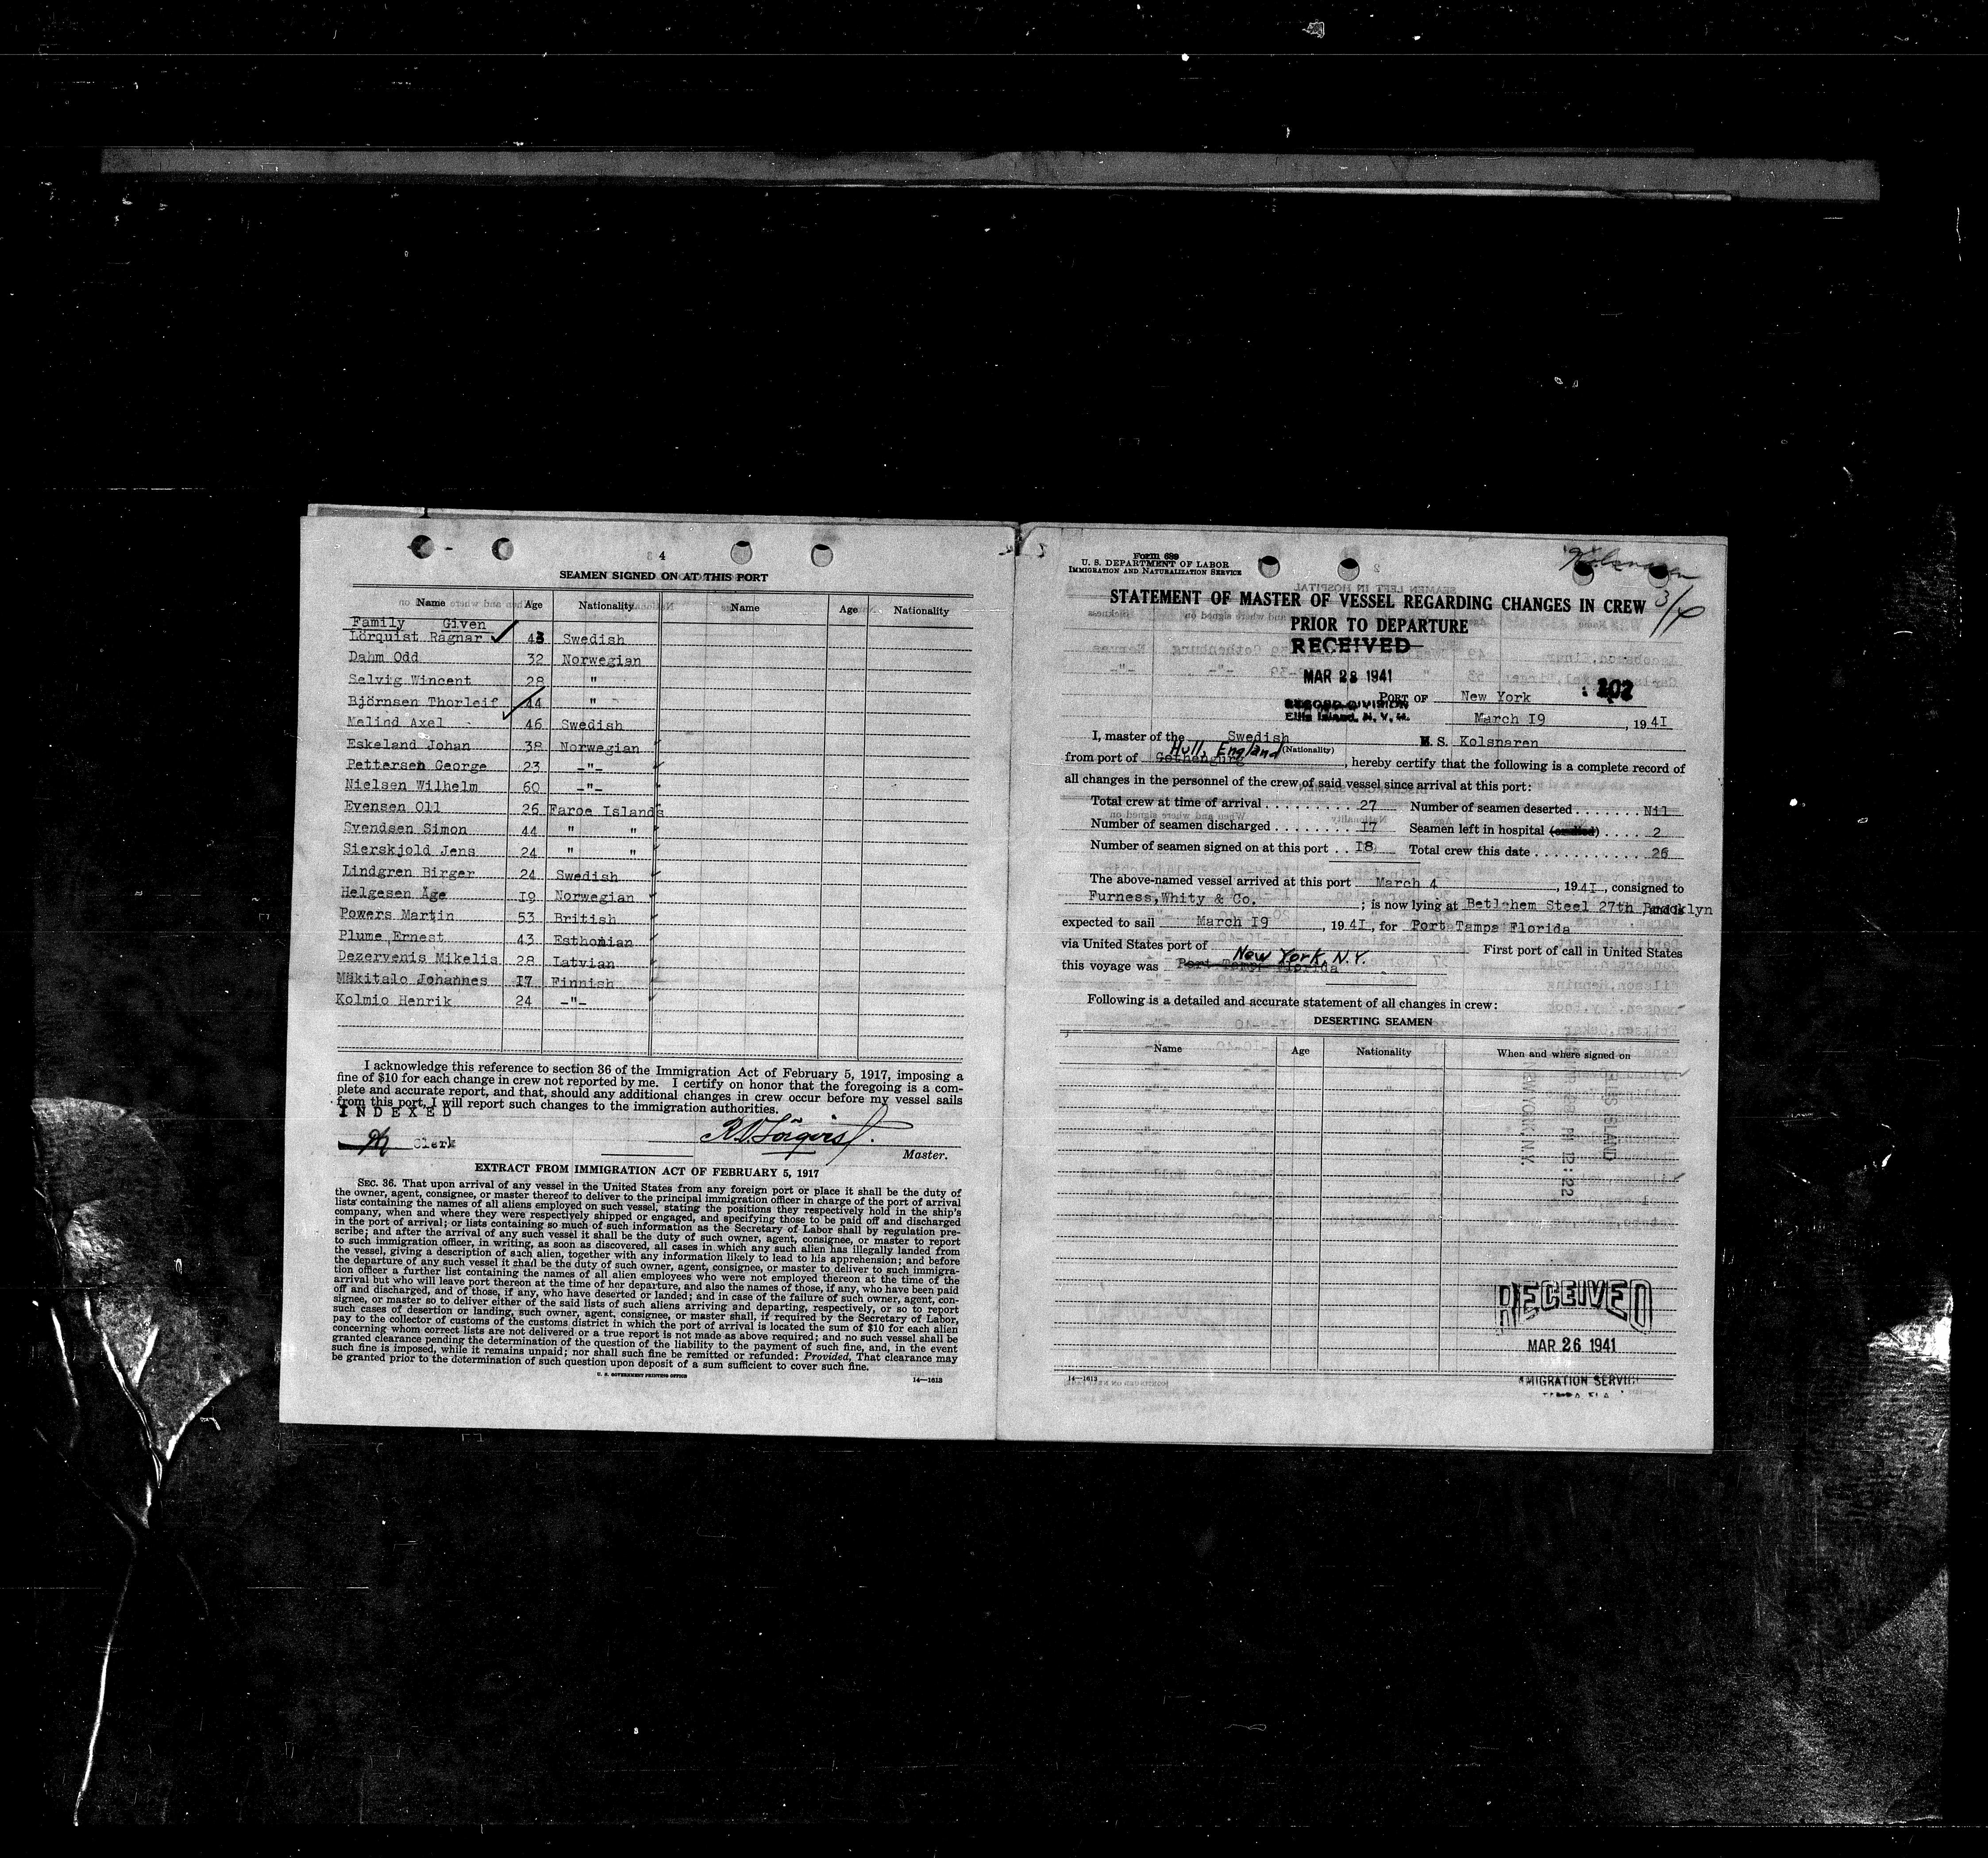 4
SEAMEN SIGNED ON AT THIS PORT
Name Age Nationality Name Age Nationality
Family Given
Lörquist Ragnar 43 Swedish
Dahm Odd 32 Norwegian
Selvig Wincent 28 "
Björnsen Thorleif 44 "
Melind Axel 46 Swedish
Eskeland Johan 38 Norwegian
Pettersen George 23 -"-
Nielsen Wilhelm 60 -"-
Evensen Oll 26 Faroe Islands
Svendsen Simon 44 " "
Sierskjold Jens 24 " "
Lindgren Birger 24 Swedish
Helgesen Åge I9 Norwegian
Powers Martin 53 British
Plume Ernest 43 Esthonian
Dezervenis Mikelis 28 Latvian
Mäkitalo Johannes I7 Finnish
Kolmio Henrik 24 -"-
I acknowledge this reference to section 36 of the Immigration Act of February 5, 1917, imposing a
fine of $10 for each change in crew not reported by me. I certify on honor that the foregoing is a com-
plete and accurate report, and that, should any additional changes in crew occur before my vessel sails
from this port, I will report such changes to the immigration authorities.
INDEXED
Clerk
Master.
EXTRACT FROM IMMIGRATION ACT OF FEBRUARY 5, 1917
SEC. 36. That upon arrival of any vessel in the United States from any foreign port or place it shall be the duty of
the owner, agent, consignee, or master thereof to deliver to the principal immigration officer in charge of the port of arrival
lists containing the names of all aliens employed on such vessel, stating the positions they respectively hold in the ship's
company, when and where they were respectively shipped or engaged, and specifying those to be paid off and discharged
in the port of arrival; or lists containing so much of such information as the Secretary of Labor shall by regulation pre-
scribe; and after the arrival of any such vessel it shall be the duty of such owner, agent, consignee, or master to report
to such immigration officer, in writing, as soon as discovered, all cases in which any such alien has illegally landed from
the vessel, giving a description of such alien, together with any information likely to lead to his apprehension; and before
the departure of any such vessel it shall be the duty of such owner, agent, consignee, or master to deliver to such immigra-
tion officer a further list containing the names of all alien employees who were not employed thereon at the time of the
arrival but who will leave port thereon at the time of her departure, and also the names of those, if any, who have been paid
off and discharged, and of those, if any, who have deserted or landed; and in case of the failure of such owner, agent, con-
signee, or master so to deliver either of the said lists of such aliens arriving and departing, respectively, or so to report
such cases of desertion or landing, such owner, agent, consignee, or master shall, if required by the Secretary of Labor,
pay to the collector of customs of the customs district in which the port of arrival is located the sum of $10 for each alien
concerning whom correct lists are not delivered or a true report is not made as above required; and no such vessel shall be
granted clearance pending the determination of the question of the liability to the payment of such fine, and, in the event
such fine is imposed, while it remains unpaid; nor shall such fine be remitted or refunded: Provided, That clearance may
be granted prior to the determination of such question upon deposit of a sum sufficient to cover such fine.
U. S. GOVERNMENT PRINTING OFFICE
14—1613
Form 689
U. S. DEPARTMENT OF LABOR
IMMIGRATION AND NATURALIZATION SERVICE
Kolsnaren
3/4
STATEMENT OF MASTER OF VESSEL REGARDING CHANGES IN CREW
PRIOR TO DEPARTURE
RECEIVED
MAR 28 1941
RECORD DIVISION
Ellis Island, N. Y. H.
102
PORT OF New York
March I9, 1941
I, master of the Swedish M. S. Kolsnaren
(Nationality)
from port of Gothenburg Hull, England, hereby certify that the following is a complete record of
all changes in the personnel of the crew of said vessel since arrival at this port:
Total crew at time of arrival . . . . . . . . . 27 Number of seamen deserted . . . . . . . Nil
Number of seamen discharged . . . . . . . . I7 Seamen left in hospital . . . . . 2
Number of seamen signed on at this port . . I8 Total crew this date . . . . . . . . . . . . 26
The above-named vessel arrived at this port March 4, 1941, consigned to
Furness,Whity & Co. ; is now lying at Betlehem Steel 27th Brooklyn, and is
expected to sail March I9, 1941, for Port Tampa Florida
via United States port of First port of call in United States
this voyage was Port Tampa Florida New York, N.Y.
Following is a detailed and accurate statement of all changes in crew:
DESERTING SEAMEN
Name Age Nationality When and where signed on
ELLIS ISLAND
NEW YORK, N.Y.
PM 12:22
RECEIVED
MAR 26 1941
IMMIGRATION SERVICE
TAMPA FLA
14—1613